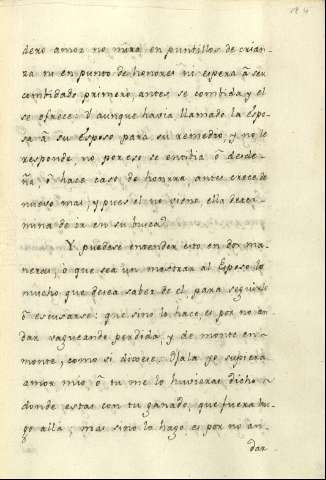 dero amor no mira en puntillos de crian-
za ni en punto de honores ni espera q̃ ser
combidado primero, antes se combida, y el
se ofrece: Y aunque havia llamado la Espo-
sa a su Esposo para su remedio, y no le
responde, no por eso se entibia ó desde-
ña, ó hace caso de honrra, antes crece de
nuevo mas, y pues el no viene, ella deter-
mina de ir en su busca.
Y puedese entender esto en dos ma-
neras, o que sea un mostrar al Esposo lo
mucho que desea saber de el para seguirle
ó escusarse: que sino lo hace, es por no an
dar vagueando perdida, y de monte en-
monte, como si dixese. Ojala yo supiera
amor mio, ó tu me lo huvieras dicho a
donde estas con tu ganado, que fuera lu-
go alla; mas sino lo hago, es por no an-
dar